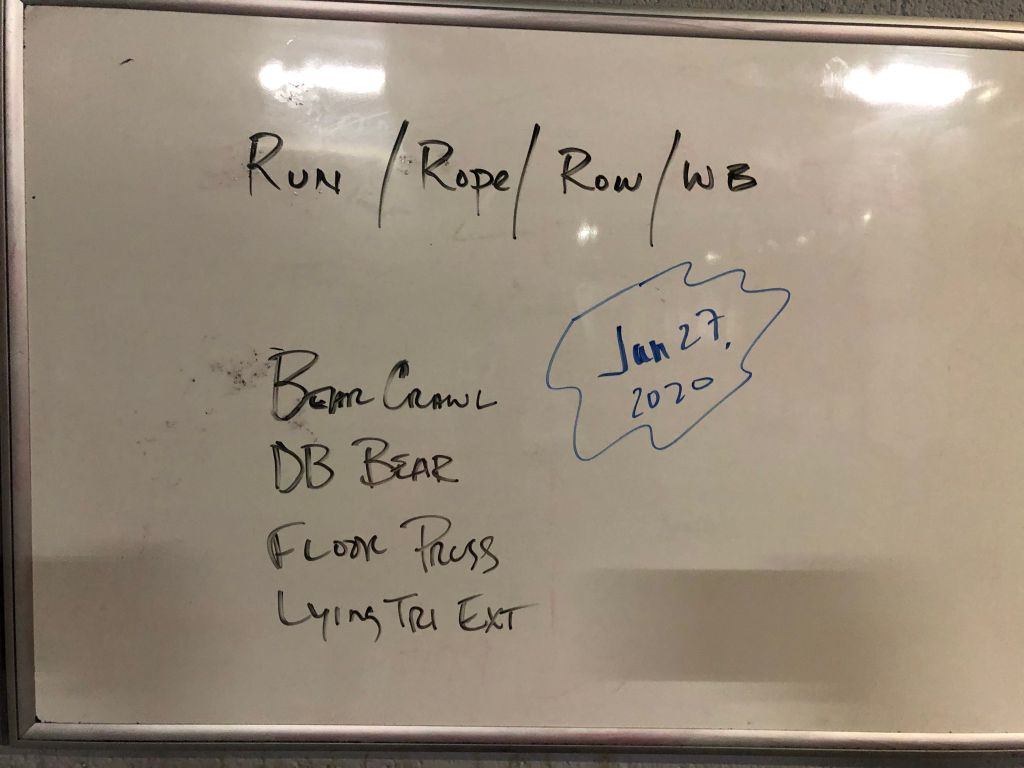 Run / Rope / Row / WB
Jan 27,
2020
Bear Crawl
DB Bear
Floor Press
Lying Tri Ext